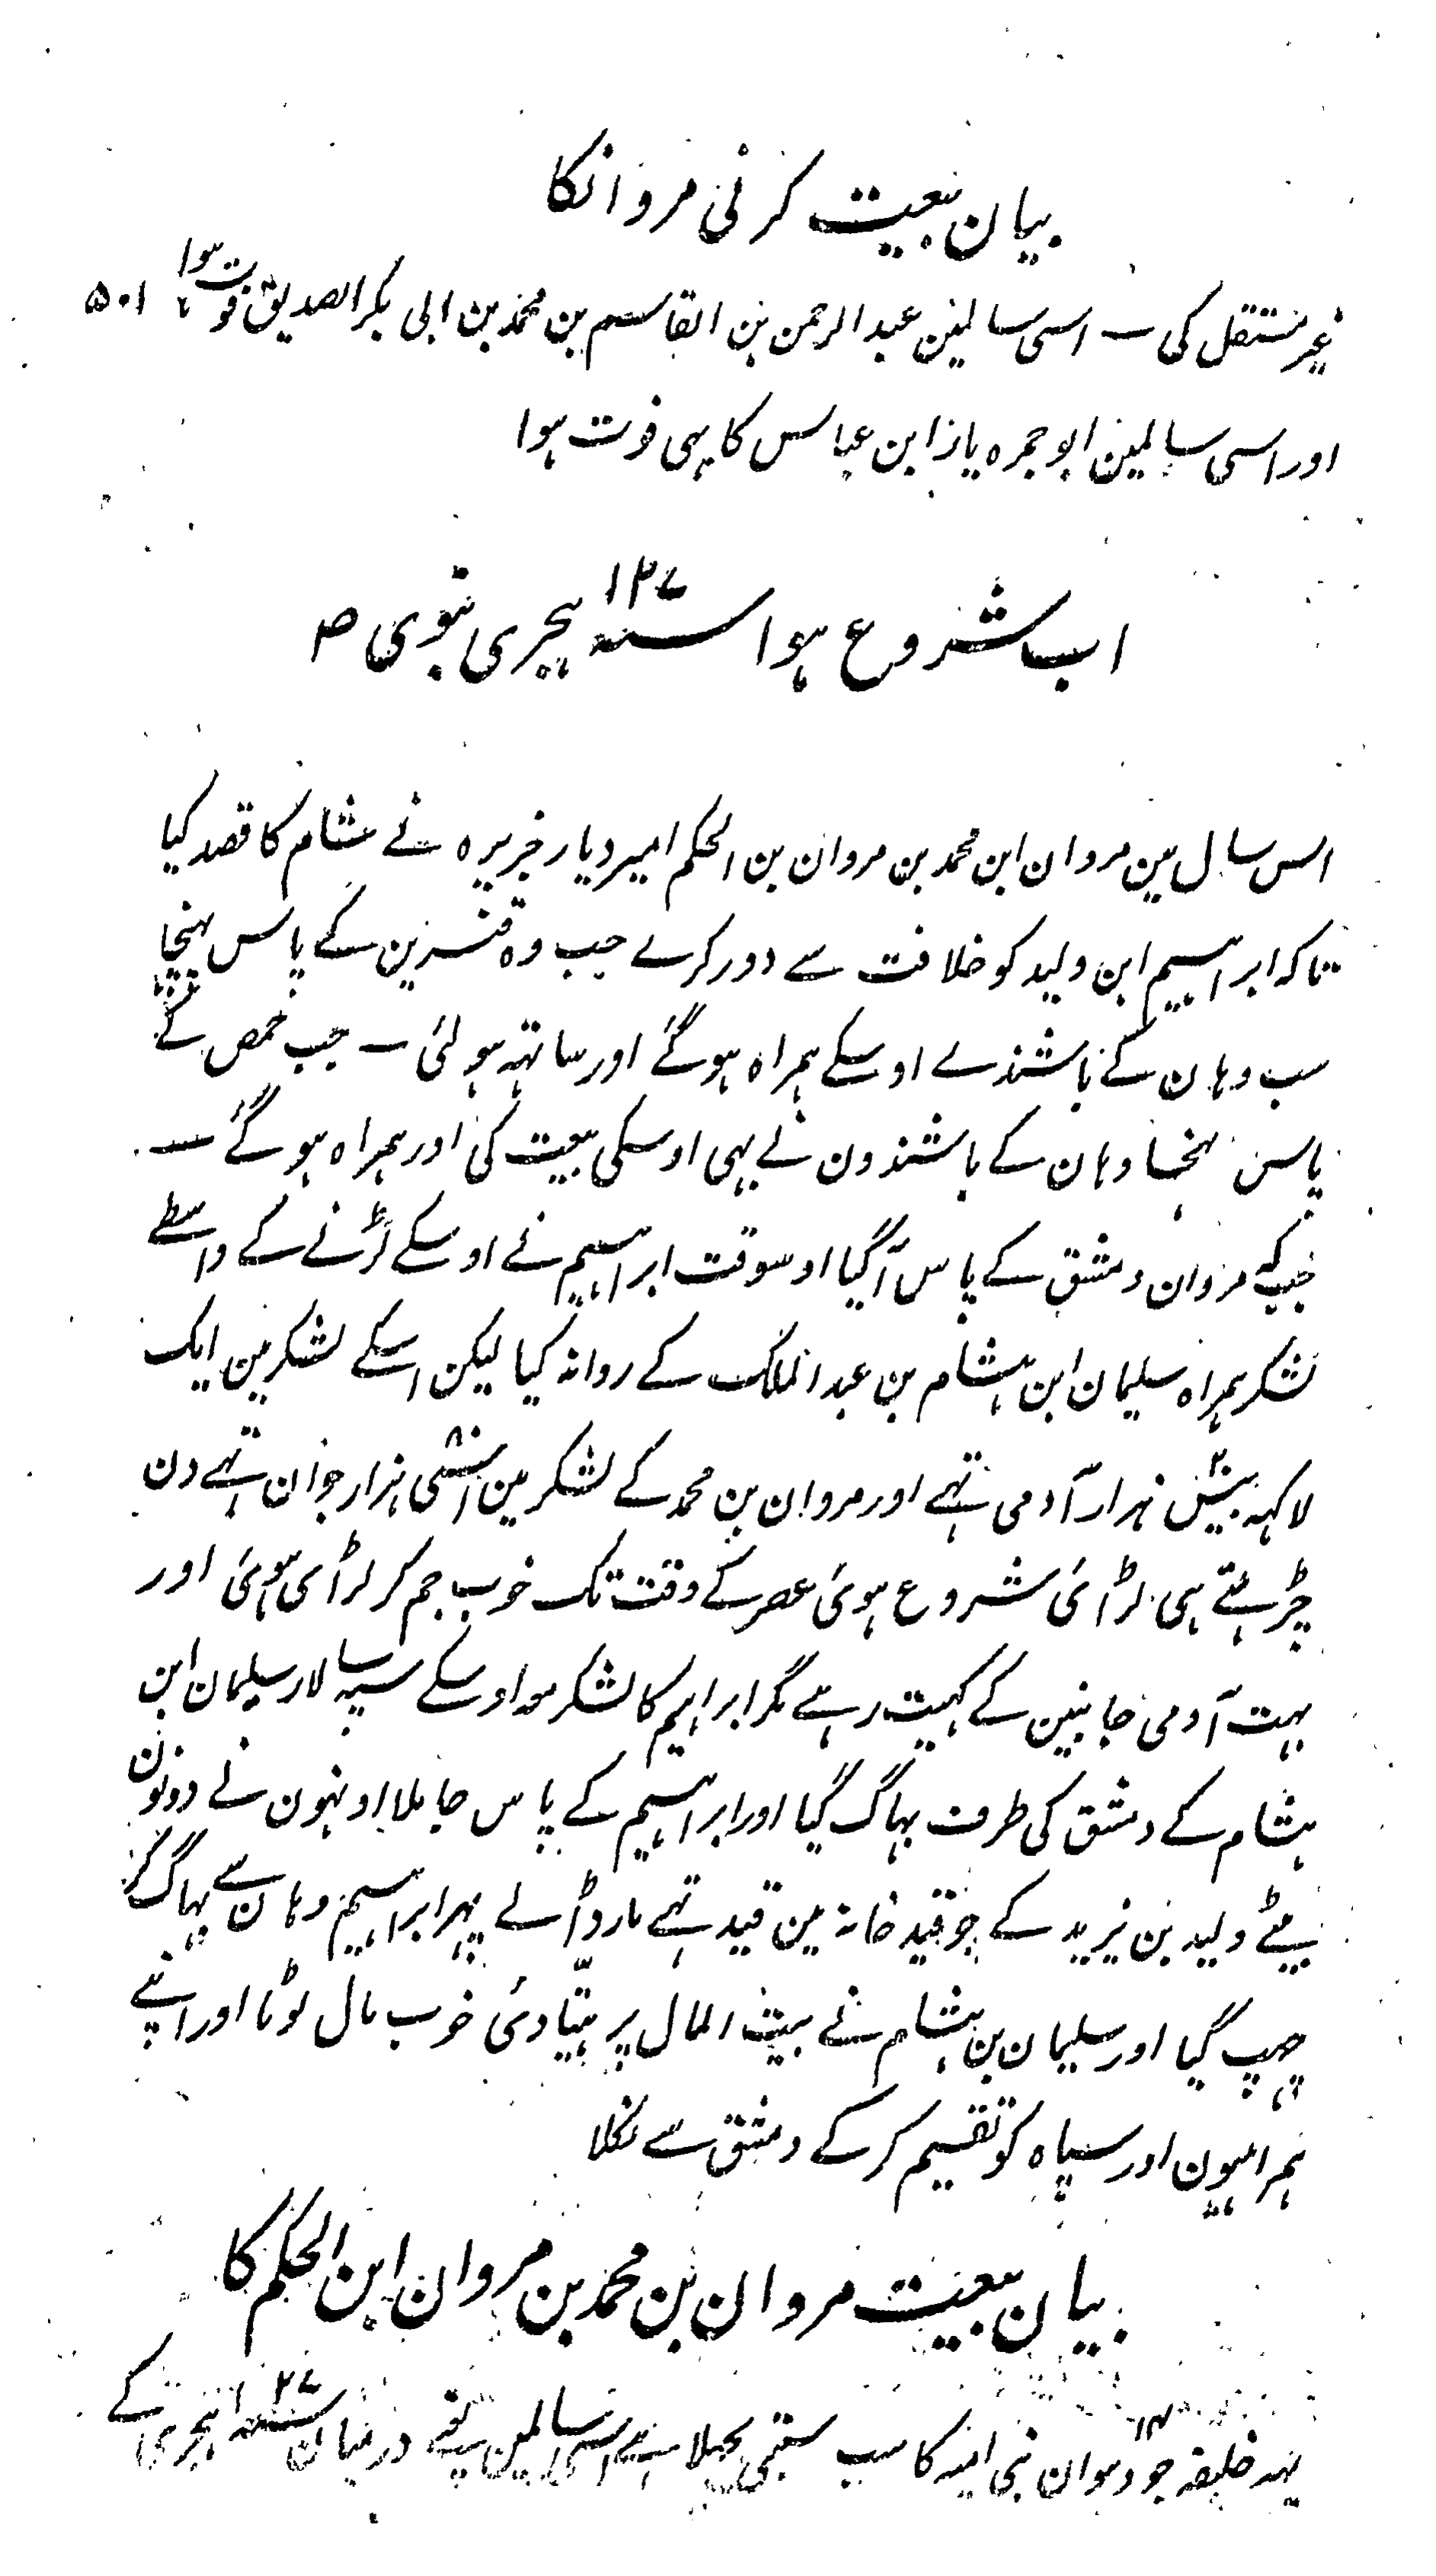 بیان بیعت کرنی مروانکا
غیر مستقل کی ـ اسی سالمین عبد الرحمن بن القاسم بن محمد بن ابی بکر الصدیق فوت ہوا ۵۰۱
اور اسی سالمین ابو جمرہ یار ابن عباس کا بہی فوت ہوا
اب شروع ہوا سنہ ۱۲۷ ہجری نبوی ص
اس سال مین مروان ابن محمد بن مروان بن الحکم امیر دیار جزیرہ نے شام کا قصد کیا
تاکہ ابراہیم ابن ولید کو خلافت سے دور کرے جب وہ قنسرین کے پاس پہنچا
سب وہان کے باشندے اوسکے ہمراہ ہوگئے اور ساتہہ ہولئی ـ جب حمص کے
پاس پہنچا وہان کے باشندون نے بہی اوسکی بیعت کی اور ہمراہ ہوگئے ـ
جب کہ مروان دمشق کے پاس آگیا اوسوقت ابراہیم نے اوسکے لڑنے کے واسطے
لشکر ہمراہ سلیمان ابن ہشام بن عبد الملک کے روانہ کیا لیکن اسکے لشکر مین ایک
لاکہہ بیس ہزار آدمی تہے اور مروان بن محمد کے لشکر مین اسّی ہزار جوان تہے دن
چڑہتے ہی لڑائی شروع ہوئی عصر کے وقت تک خوب جم کر لڑائی ہوئی اور
بہت آدمی جانبین کے کہیت رہے مگر ابراہیم کا لشکر معہ اوسکے سپہ سالار سلیمان ابن
ہشام کے دمشق کی طرف بہاگ گیا اور ابراہیم کے پاس جا ملا اونہون نے دونون
بیٹے ولید بن یزید کے جو قید خانہ مین قید تہے مار ڈالے پہر ابراہیم وہان سے بہاگ کر
چہپ گیا اور سلیمان بن ہشام نے بیت المال پر ہتّادئ خوب مال لوٹا اور اپنے
ہمراہیون اور سپاہ کو تقسیم کر کے دمشق سے نکلا
بیان بیعت مروان بن محمد بن مروان ابن الحکم کا
یہہ خلیفہ چودہوان ۱۴ بنی امیہ کا سب سے پچہلا ہے اسی سالمین یعنے درمیان سنہ ۱۲۷ ہجری کے